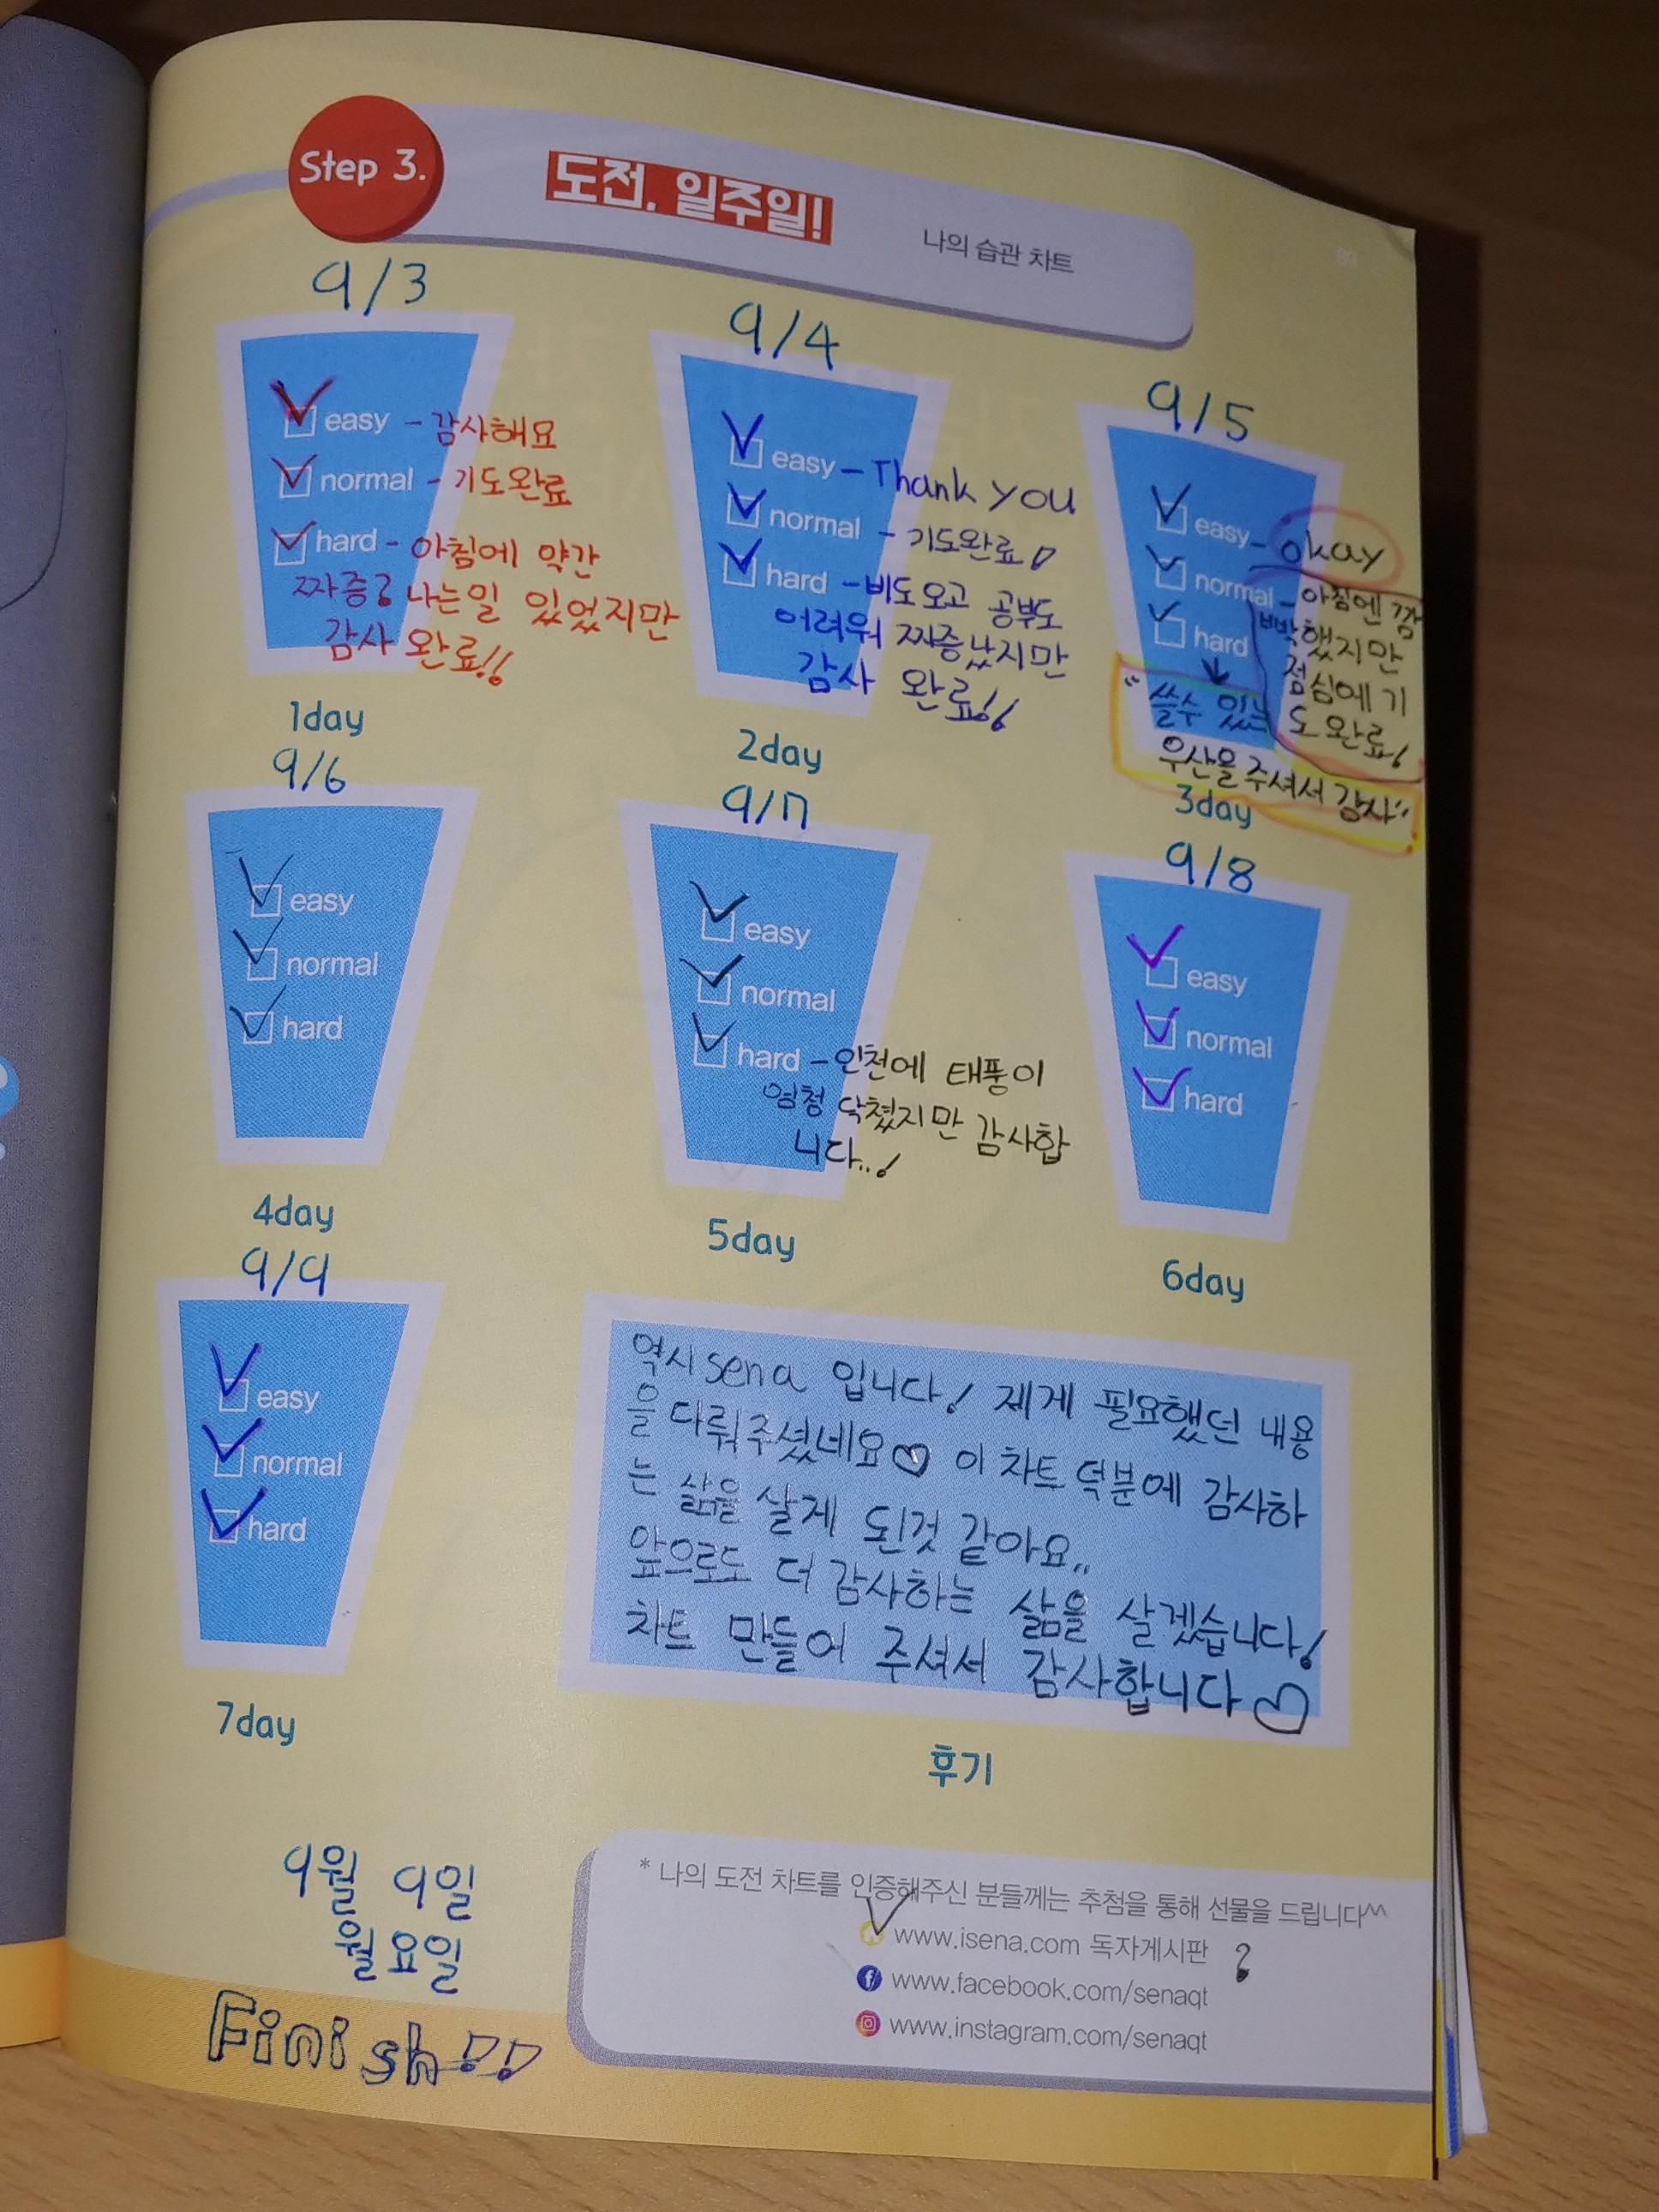 Step 3.
도전. 일주일!
나의 습관 차트
80
9/3
easy - 감사해요
normal - 기도완료
hard - 아침에 약간
짜증나는일 있었지만
감사 완료!!
1day
9/4
easy - Thank you
normal - 기도완료
hard - 비도오고 공부도
어려워 짜증났지만
감사 완료!!
2day
9/5
easy - okay
normal - 아침엔 깜
빡했지만
점심에 기
도 완료!
hard
"쓸수 있는
우산을 주셔서 감사"
3day
9/6
easy
normal
hard
4day
9/7
easy
normal
hard - 인천에 태풍이
엄청 닥쳤지만 감사합
니다..!
5day
9/8
easy
normal
hard
6day
9/9
easy
normal
hard
7day
역시 sena 입니다! 제게 필요했던 내용
을 다뤄주셨네요♡ 이 차트 덕분에 감사하
는 삶을 살게 된것 같아요..
앞으로도 더 감사하는 삶을 살겠습니다!
차트 만들어 주셔서 감사합니다♡
후기
9월 9일
월요일
Finish!!
* 나의 도전 차트를 인증해주신 분들께는 추첨을 통해 선물을 드립니다^^
www.isena.com 독자게시판 ?
www.facebook.com/senaqt
www.instagram.com/senaqt